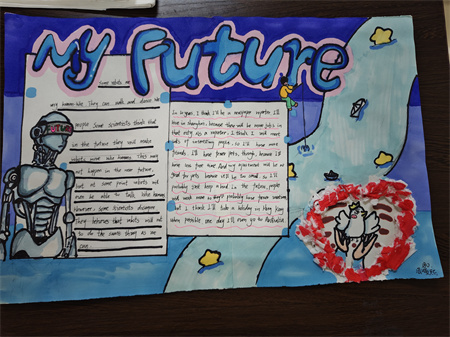 My Future
some robots are
my human-like. They can walk and dance like
people. Some scientists think that
in the future they will make
robots more like humans. This may
not happen in the near future,
but at some point robots will
even be able to talk like humans
However, some scientists disagree
They believes that robots will not
to do the same things as we
can.
In ten years I think I'll be a newspaper reporter I'll
live in Shanghai, because there will be more jobs in
that city. As a reporter. I think I will meet
lots of interesting people. So I'll have more
friends. I'll have fewer pets, though, because I'll
have less free time. And my apartment will be no
good for pets because it'll be too small. So I'll
probably just keep a bird. In the future, people
will work more so they'll probably have fewer vacations
but I think I'll take a holiday in Hong Kong
when possible one day I'll even go to Australia.